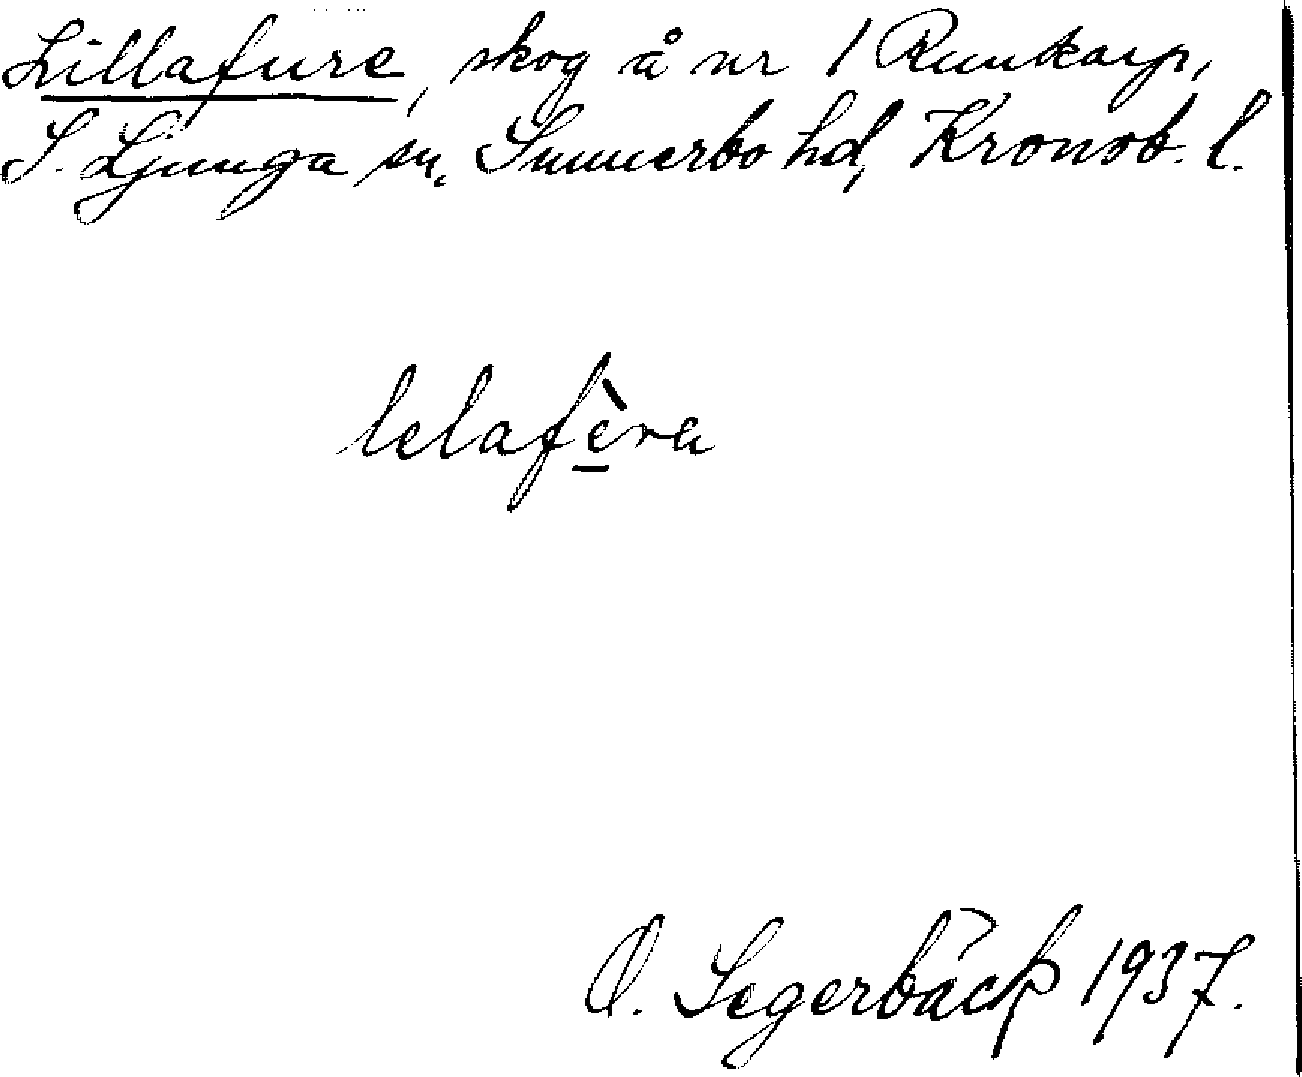 Lillafure, skog å nr 1 Runkarp,
S. Ljunga sn, Sunnerbo hd, Kronob. l.
lelafèra
O. Segerbäck 1937.